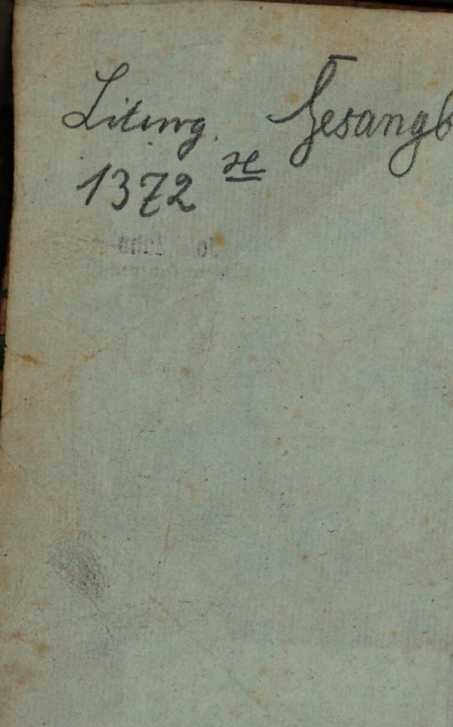 Liturg. Gesangb
1372 x